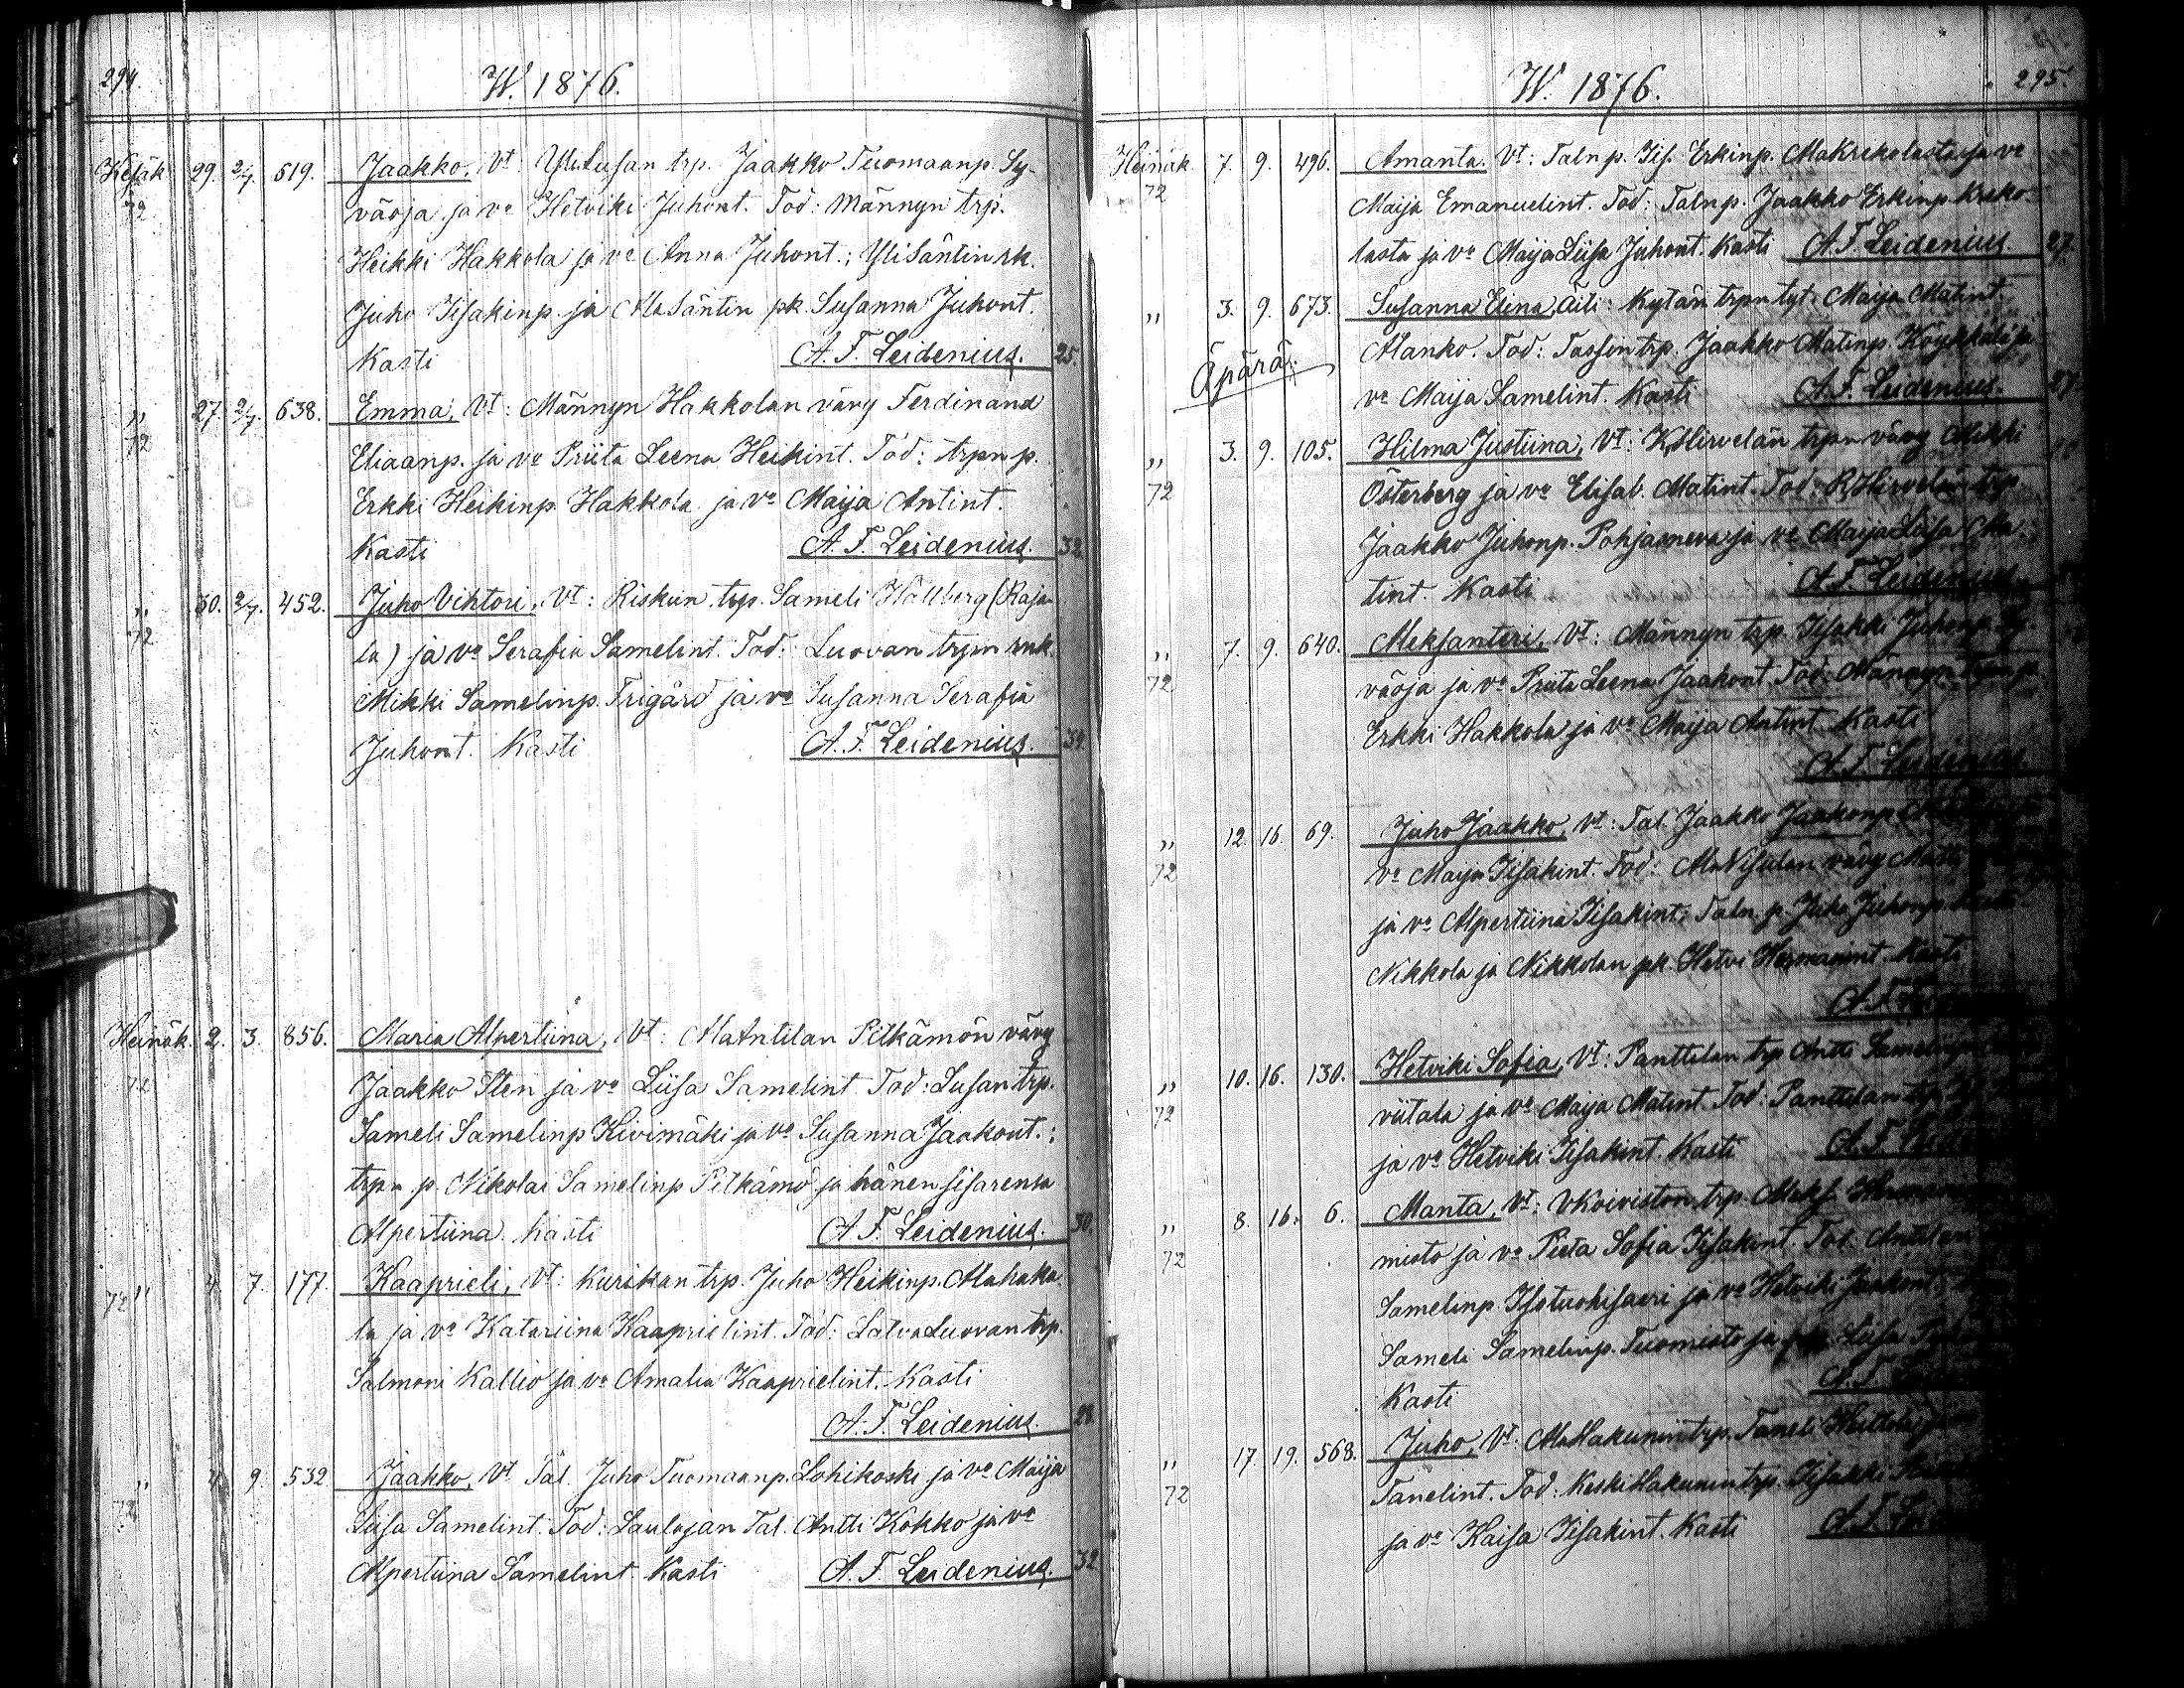 294.
W. 1876.
Kesäk. 29. 2/7. 619. Jaakko, Vt: YliLusan trp. Jaakko Tuomaanp. Sy-
72 väoja ja vo Hetviki Juhont. Tod: Männyn trp.
Heikki Hakkola ja vo Anna Juhont.; YliSäntin rk.
Juho Iisakinp. ja AlaSäntin pk. Susanna Juhont.
Kasti A. F. Leidenius. 25.
" 27. 2/7. 638. Emma, Vt: Männyn Hakkolan vävy Ferdinand
72 Eliaanp. ja vo Priita Leena Heikint. Tod: trpn p.
Erkki Heikinp. Hakkola ja vo Maija Antint.
Kasti A. F. Leidenius. 32.
" 30. 2/7. 452. Juho Vihtori, Vt: Riskun trp. Sameli Hällberg (Raja-
72 la) ja vo Serafia Samelint. Tod: Luovan trpn rnk.
Mikki Samelinp. Frigård ja vo Susanna Serafia
Juhont. Kasti A. F. Leidenius. 34.
Heinäk. 2. 3. 856. Maria Alpertiina, Vt: AlaAntilan Pitkämön vävy
72 Jaakko Sten ja vo Liisa Samelint. Tod: Lusan trp.
Sameli Samelinp Kivimäki ja vo Susanna Jaakont.;
trpn p. Nikolai Samelinp Pitkämö ja hänen sisarensa
Alpertiina. Kasti A. F. Leidenius. 30.
" 4. 7. 177. Kaaprieli, Vt: Kurikan trp. Juho Heikinp. Alahaka-
72 la ja vo Katariina Kaaprielint. Tod: LatvaLuovan trp.
Salmoni Kallio ja vo Amalia Kaaprielint. Kasti
A. F. Leidenius. 28.
" 4. 9. 532. Jaakko, Vt. Tal. Juho Tuomaanp. Lohikoski ja vo Maija
72 Liisa Samelint. Tod: Laulajan Tal. Antti Kokko ja vo
Alpertiina Samelint. Kasti A. F. Leidenius. 32
W. 1876. 295.
Heinäk. 7. 9. 496. Amanta. Vt: Taln p. Iis. Erkinp. AlaKrekolasta ja vo
72 Maija Emanuelint. Tod: Taln p. Jaakko Erkinp. Kreko-
lasta ja vo Maija Liisa Juhont. Kasti A. F. Leidenius. 27.
" 3. 9. 673. Susanna Elina, Äiti: Kytän trpn tyt. Maija Matint.
Äpärä. Manko. Tod: Tassin trp. Jaakko Matinp. Köykkälä ja
vo Maija Samelint. Kasti A. F. Leidenius. 27
" 3. 9. 105. Hilma Justiina, Vt: KHirvelän trpn vävy Mikki
72 Österberg ja vo Elisab. Matint. Tod: RHirvelän trp.
Jaakko Juhonp. Pohjasneva ja vo Maija Liisa Ma-
tint. Kasti A. F. Leidenius
" 7. 9. 640. Aleksanteri, Vt: Männyn trp. Iisakki Juhonp Sy-
72 väoja ja vo Priita Leena Jaakont. Tod: Männyn trpn p.
Erkki Hakkola ja vo Maija Antint. Kasti
A. F. Leidenius.
" 12. 16. 69. Juho Jaakko, Vt: Tal. Jaakko Jaakonp.
72 vo Maija Iisakint. Tod: AlaVisulan vävy Matti
ja vo Alpertiina Iisakint; Taln. p. Juho Juhonp.
Nikkola ja Nikkolan pk. Hetvi Hermannint. Kasti
A. F.
" 10. 16. 130. Hetviki Sofia, Vt: Panttilan trp Antti Samelinp
72 viitala ja vo Maija Matint. Tod: Panttilan trp
ja vo Hetviki Iisakint. Kasti A. F.
" 8. 16. 6. Manta, Vt: VKoiviston trp. Aleks.
72 misto ja vo Pieta Sofia Iisakint. Tod: Antilan
Samelinp. Isotuohisaari ja vo Hetviki Jaakont;
Sameli Samelinp. Tuomisto ja Liisa
Kasti A. F.
" 17. 19. 568. Juho, Vt: AlaHakunin trp. Taneli
72 Tanelint. Tod: KeskiHakunin trp. Iisakki
ja vo Kaisa Iisakint. Kasti A. F.